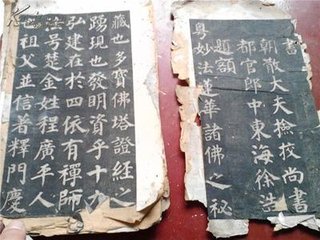 書
朝散大夫撿挍尚書
都官郎中東海徐浩
題額
粵妙法蓮華諸佛之秘
藏也多寶佛塔證經之
踴現也發明資乎十力
弘建在於四依有禪師
法号楚金姓程廣平人
祖父並信著釋門慶